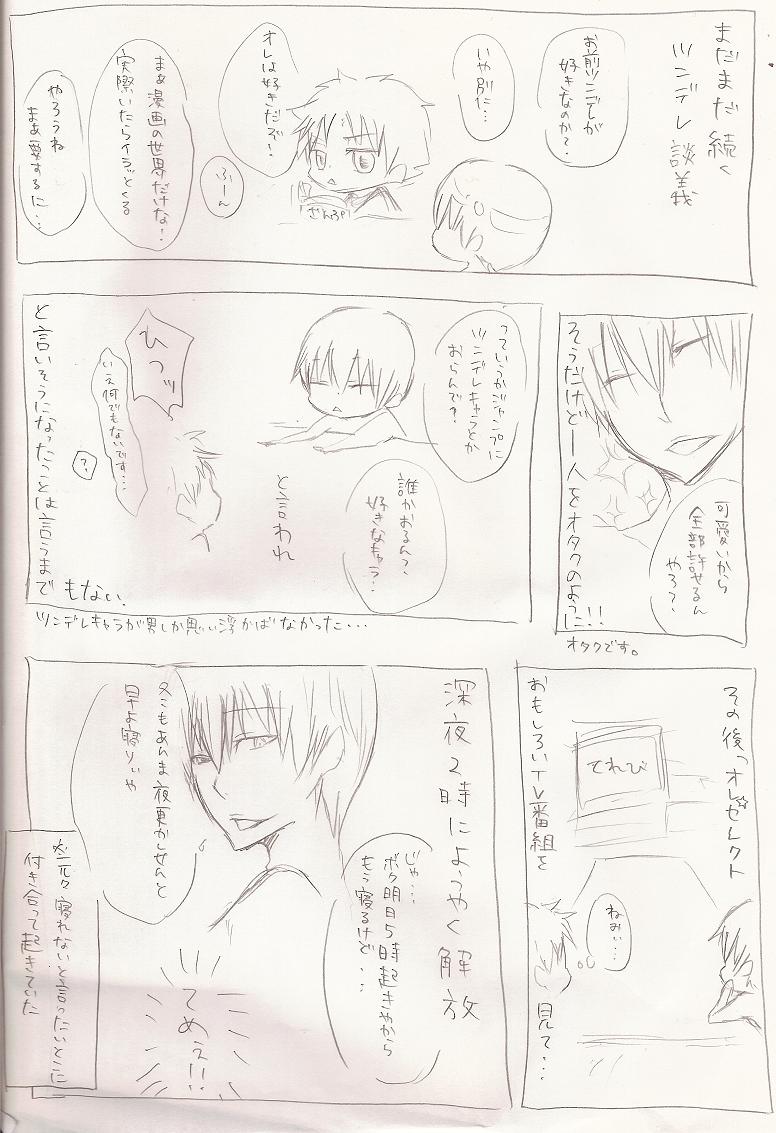 まだまだ続く
ツンデレ談義
お前ツンデレが
好きなのか?
いや別に…
オレは好きだぞ!
まぁ漫画の世界だけな!
実際いたらイラッとくる
ふーん
やろうね
まあ要するに…
可愛いから
全部許せるん
やろ?
そうだけど一人をオタクのように!!
オタクです。
っていうかジャンプに
ツンデレキャラとか
おらんで?
誰かおるん?
好きなキャラ…
と言われ
ひつッ
いえ何でもないです…
?
と言いそうになったことは言うまでもない.
ツンデレキャラが男しか思い浮かばなかった…
その後っオレセレクト
てれび
おもしろいTV番組を
ねみぃ…
見て…
深夜2時にようやく解放
じゃ…
ボク明日5時起きやから
もう寝るけど…
冬こもあんま夜更かしせんと
早よ寝りぃや
てめぇ!!
元々寝れないと言ったいとこに
付き合って起きていた